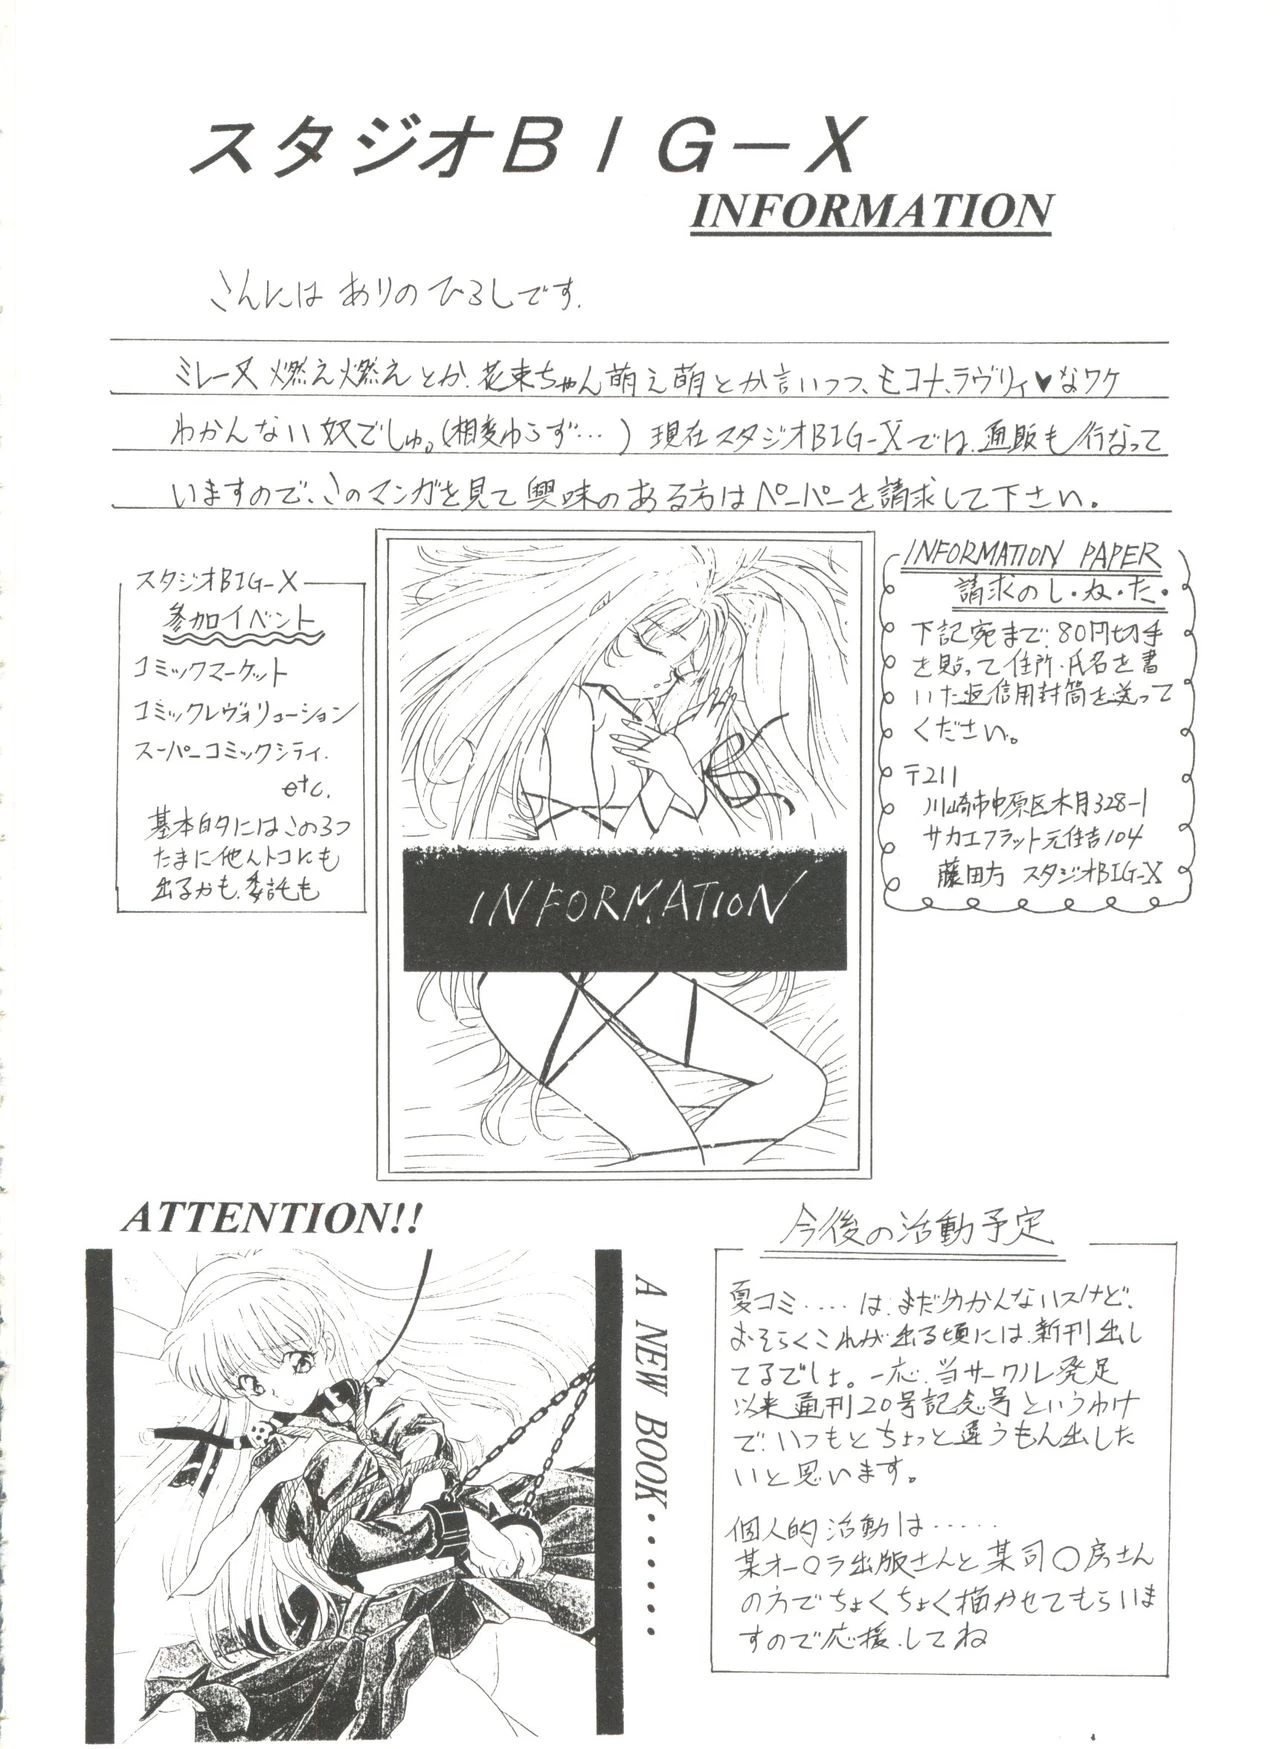 スタジオBIG－X
INFORMATION
こんにには ありのひろしです.
ミレーヌ燃え燃えとか、花束ちゃん萌え萌とか言いつつ、モコナ、ラヴリィ♥なワケ
わかんない奴でしゅ。(相変わらず…) 現在スタジオBIG-Xでは、通販も行なって
いますので、このマンガを見て興味のある方はペーパーを請求して下さい。
スタジオBIG-X
参加イベント
コミックマーケット
コミックレヴォリューション
スーパーコミックシティ.
etc.
基本的にはこの3つ
たまに他んトコにも
出るかも.委託も
INFORMATION
INFORMATION PAPER
請求のし・ね・た・
下記宛まで、80円切手
を貼って住所・氏名を書
いた返信用封筒を送って
ください。
〒211
川崎市中原区木月328-1
サカエフラット元住吉104
藤田方 スタジオBIG-X
ATTENTION!!
A NEW BOOK.......
今後の活動予定
夏コミ....は、まだわかんないスけど、
おそらくこれが出る頃には、新刊出し
てるでしょ。一応、当サークル発足
以来通刊20号記念号というわけ
で、いつもとちょっと違うもん出した
いと思います。
個人的活動は.....
某オー〇ラ出版さんと某司〇房さん
の方でちょくちょく描かせてもらいま
すので応援.してね